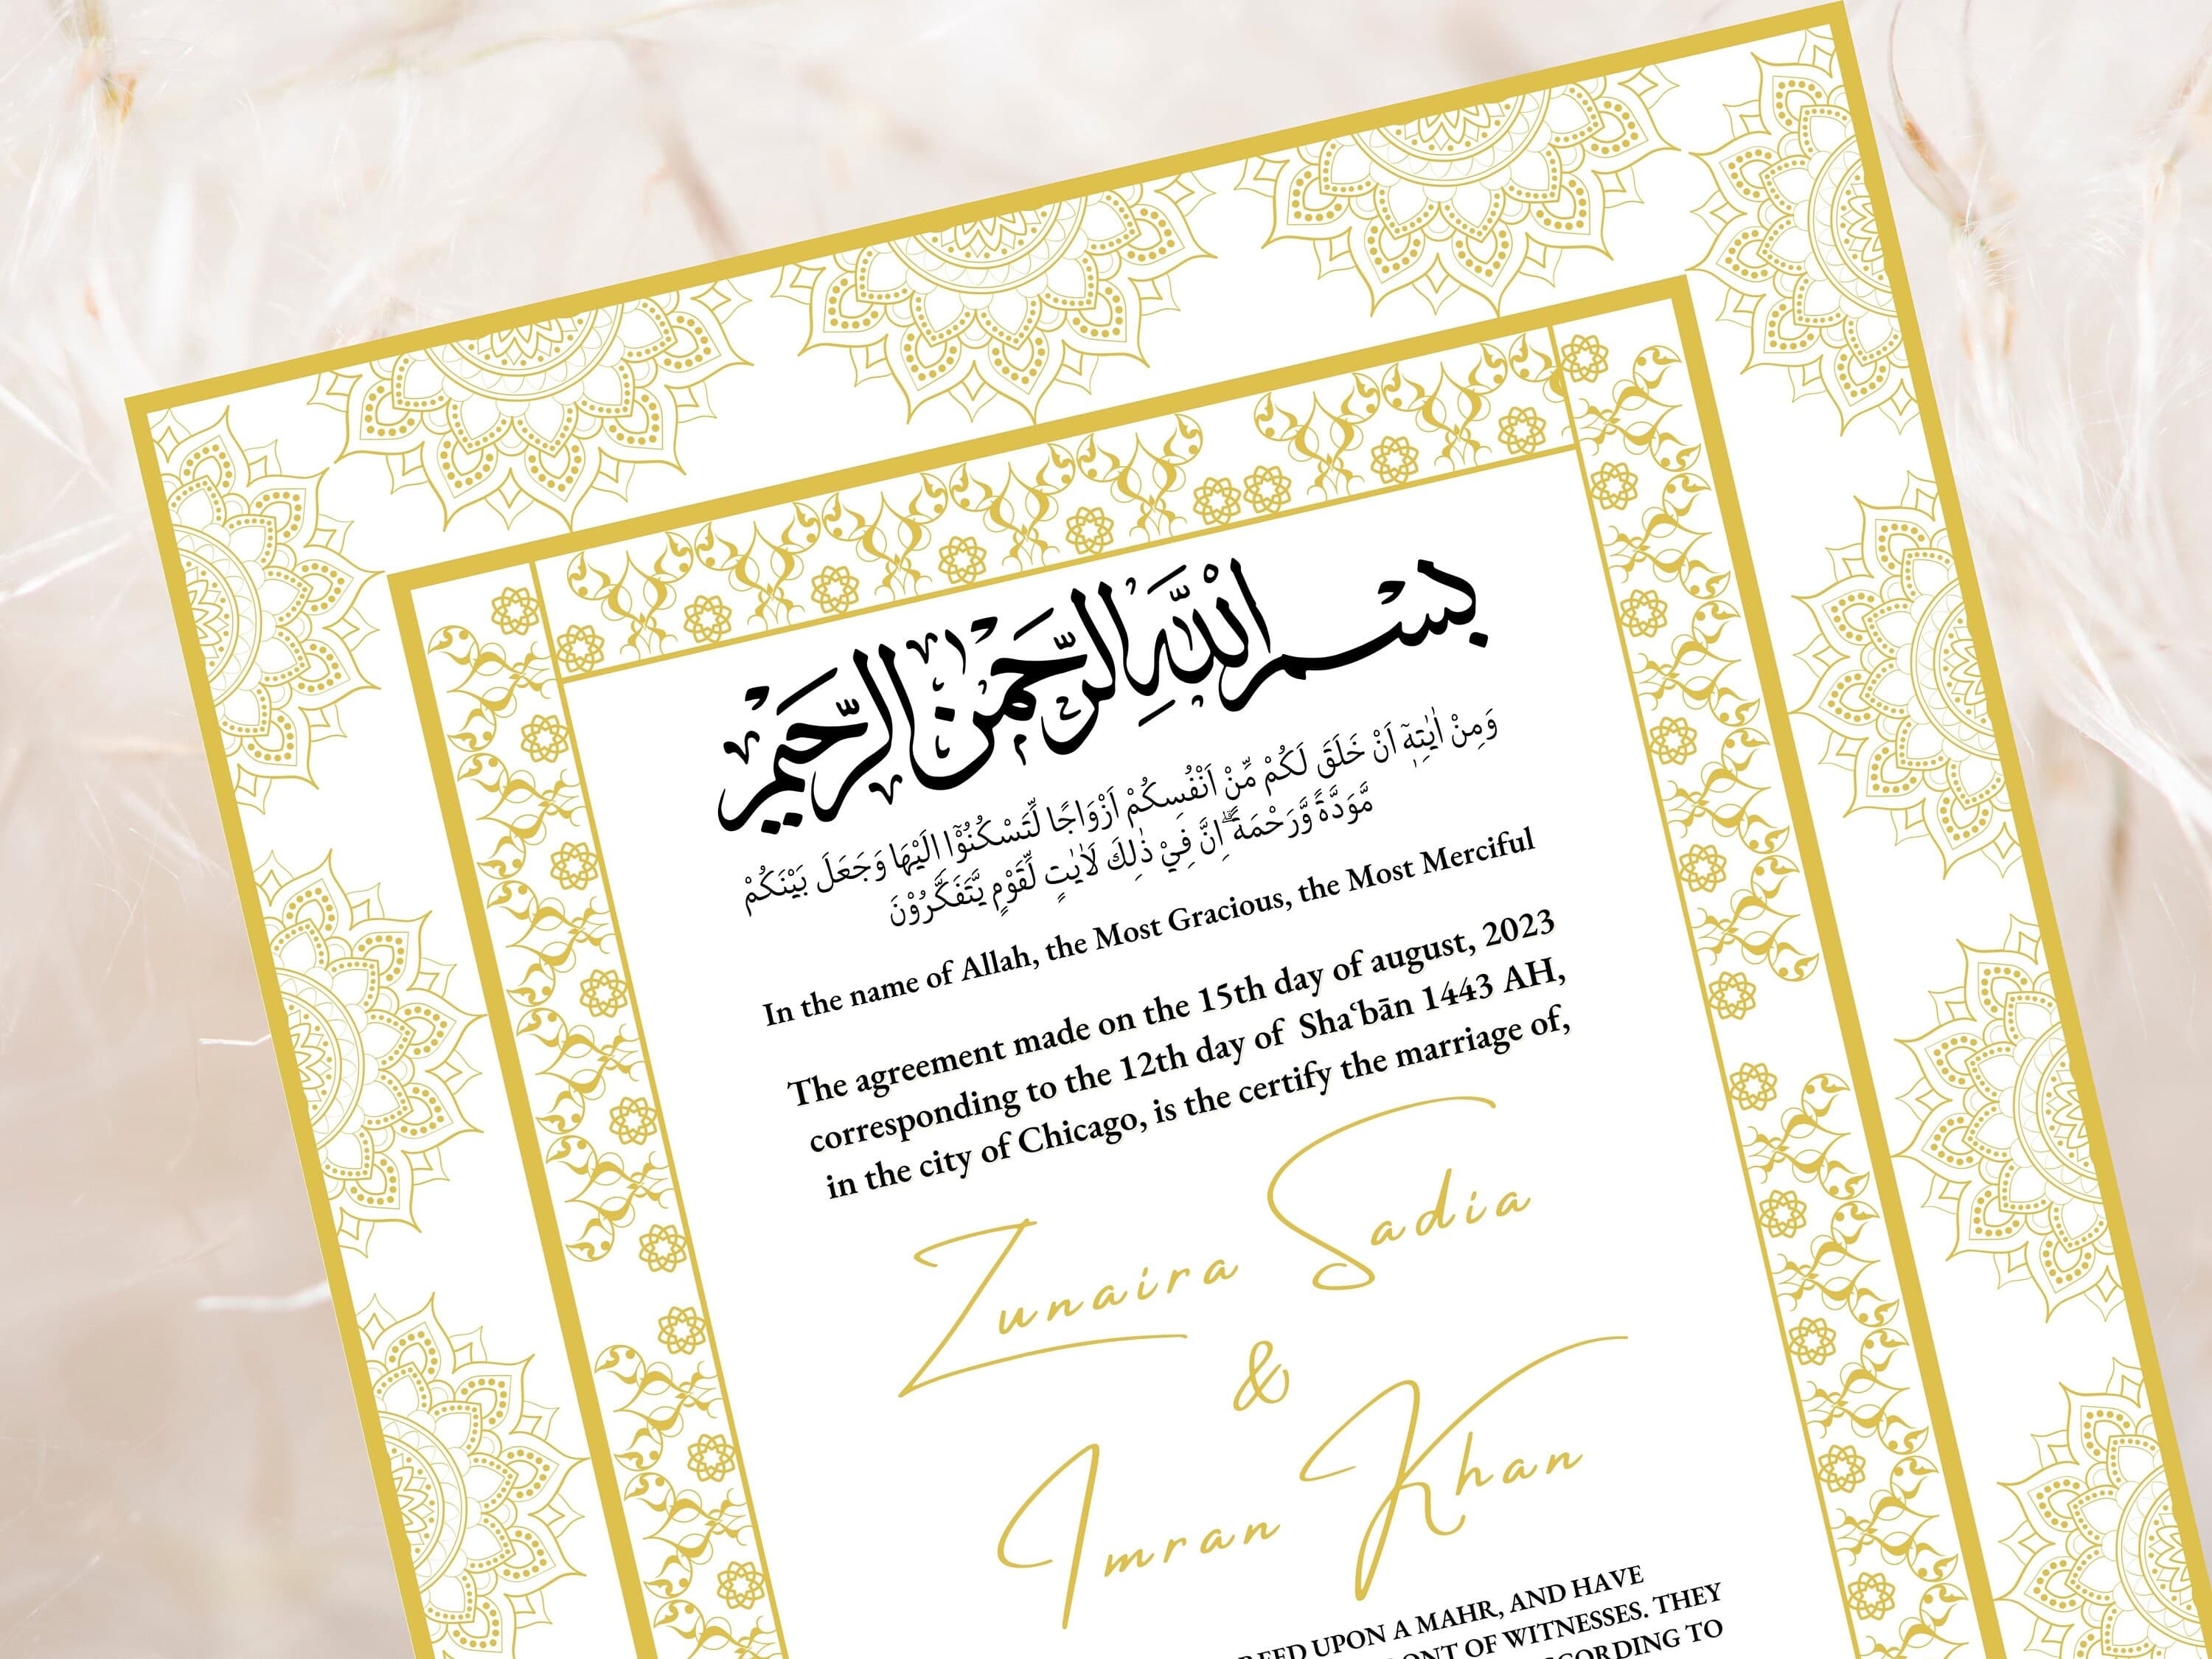 بِسْمِ اللَّهِ الرَّحْمٰنِ الرَّحِيْمِ
وَمِنْ اٰيٰتِهٖٓ اَنْ خَلَقَ لَكُمْ مِّنْ اَنْفُسِكُمْ اَزْوَاجًا لِّتَسْكُنُوْٓا اِلَيْهَا وَجَعَلَ بَيْنَكُمْ
مَّوَدَّةً وَّرَحْمَةً ۗاِنَّ فِيْ ذٰلِكَ لَاٰيٰتٍ لِّقَوْمٍ يَّتَفَكَّرُوْنَ
In the name of Allah, the Most Gracious, the Most Merciful
The agreement made on the 15th day of august, 2023
corresponding to the 12th day of Sha‘bān 1443 AH,
in the city of Chicago, is the certify the marriage of,
Zunaira Sadia
&
Imran Khan
UPON A MAHR, AND HAVE
OF WITNESSES. THEY
TO